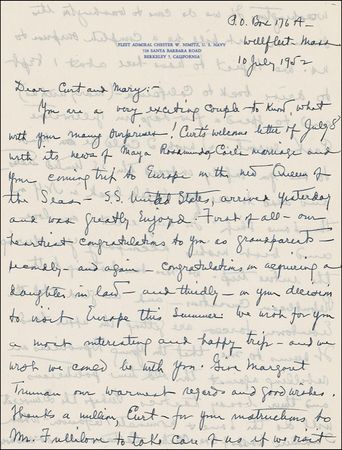 P.O. Box 176A -
Wellfleet Mass
10 July 1952
FLEET ADMIRAL CHESTER W. NIMITZ, U. S. NAVY
728 SANTA BARBARA ROAD
BERKELEY 7, CALIFORNIA
Dear Curt and Mary: -
You are a very exciting couple to know, what
with your many surprises! Curt's welcome letter of July 8
with its news of marriage and
your coming trip to Europe in the new Queen of
the Seas - S.S. United States, arrived yesterday
and was greatly enjoyed. First of all - our
heartiest congratulations to you as grandparents -
secondly - and again - congratulations in acquiring a
daughter in law - and thirdly - on your decision
to visit Europe this Summer. We wish for you
a most interesting and happy trip - and we
wish we could be with you. Give Margaret
Truman our warmest regards and good wishes.
Thanks a million, Curt - for your instructions to
Mr. Fullilove to take care of us if we visit